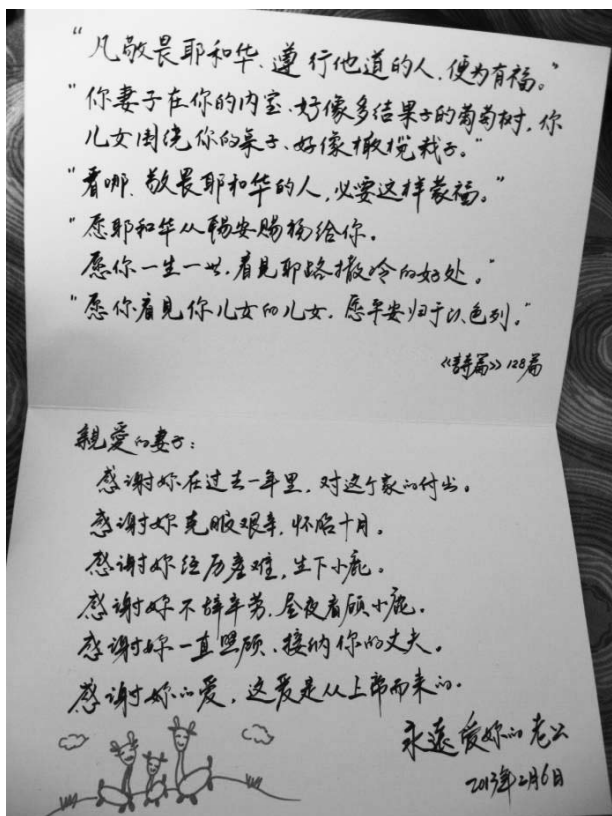 “凡敬畏耶和华、遵行他道的人,便为有福。”
“你妻子在你的内室、好像多结果子的葡萄树,你
儿女围绕你的桌子、好像橄榄栽子。”
“看哪、敬畏耶和华的人,必要这样蒙福。”
“愿耶和华从锡安赐福给你。
愿你一生一世,看见耶路撒冷的好处。”
“愿你看见你儿女的儿女,愿平安归于以色列。”
《诗篇》128篇
親愛的妻子:
感谢妳在过去一年里,对这个家的付出。
感谢妳克服艰辛,怀胎十月。
感谢妳经历产难,生下小鹿。
感谢妳不辞辛劳,全夜看顾小鹿。
感谢妳一直照顾、接纳你的丈夫。
感谢妳的爱,这爱是从上帝而来的.
永遠爱妳的老公
2013年2月6日